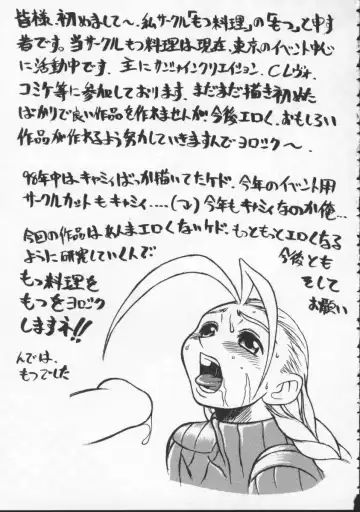 皆様、初めまして〜。私サークル「もつ料理」の「もつ」と申す
者です。当サークルもつ料理は現在、東京のイベント中心
に活動中です。主にサンシャインクリエイション、Cレヴォ、
コミケ等に参加しております。まだまだ描き初めた
ばかりで良い作品を作れませんが今後エロく、おもしろい
作品が作れるよう努力していきますんでヨロシク〜。
96年中はキャミィばっか描いてたケド、今年のイベント用
サークルカットもキャミィ....(フ) 今年もキャミィなのか俺...
今回の作品はあんまエロくないケド、もっともっとエロくなる
ように研究していくんで
今後とも
もつ料理を
そして
もつをヨロシク
お願い
しますネ!!
んでは、
もつでした